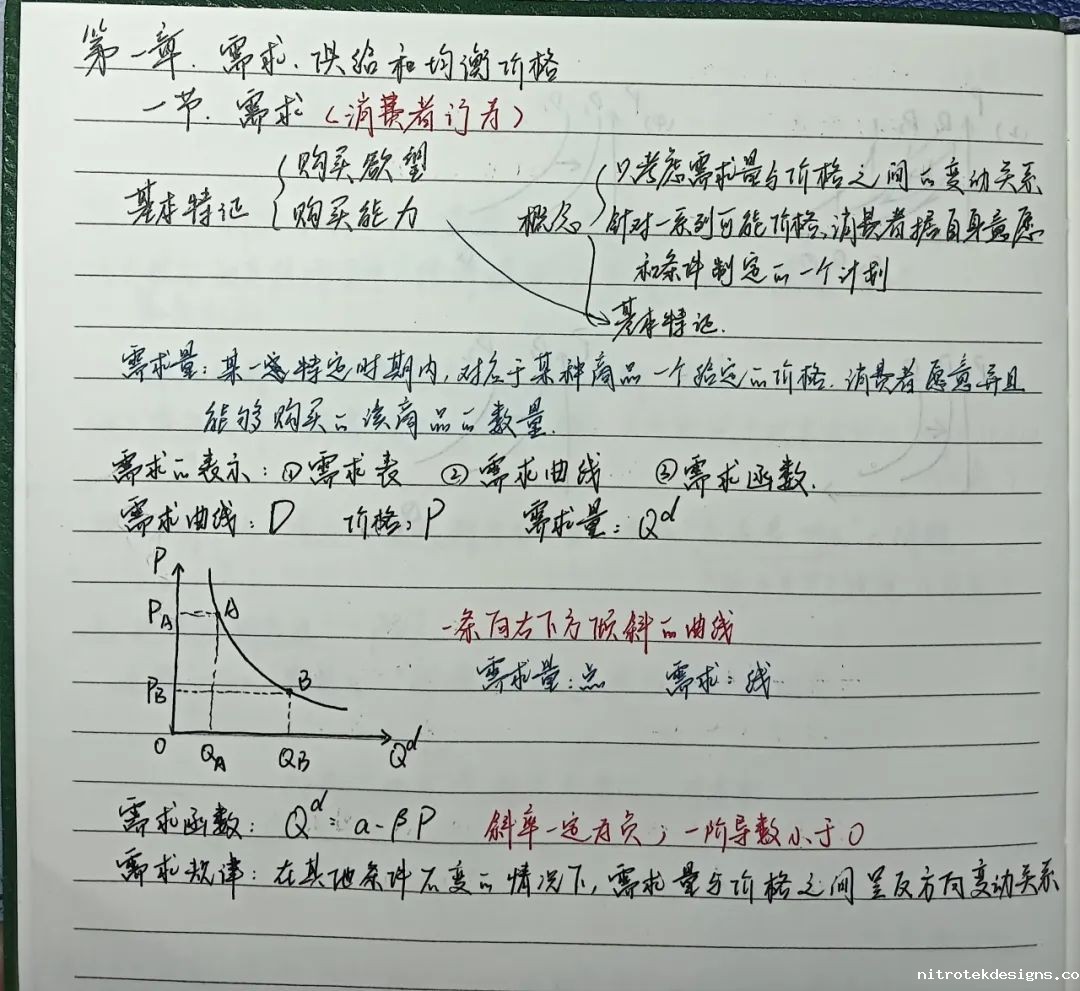 第一章. 需求、供给和均衡价格
一节. 需求（消费者行为）
基本特征 { 购买欲望
购买能力
概念 { 只考虑需求量与价格之间的变动关系
针对一系列可能价格、消费者据自身意愿
和条件制定的一个计划
基本特征.
需求量: 某一特定时期内, 对应于某种商品一个给定的价格. 消费者愿意并且
能够购买的该商品的数量.
需求的表示: ①需求表 ②需求曲线 ③需求函数.
需求曲线: D 价格: P 需求量: Qᵈ
P
P_A A
P_B B
O Q_A Q_B Qᵈ
一条向右下方倾斜的曲线
需求量: 点 需求: 线
需求函数: Qᵈ = α - βP 斜率一定为负; 一阶导数小于0
需求规律: 在其他条件不变的情况下, 需求量与价格之间呈反方向变动关系
nitrotekdesigns.co